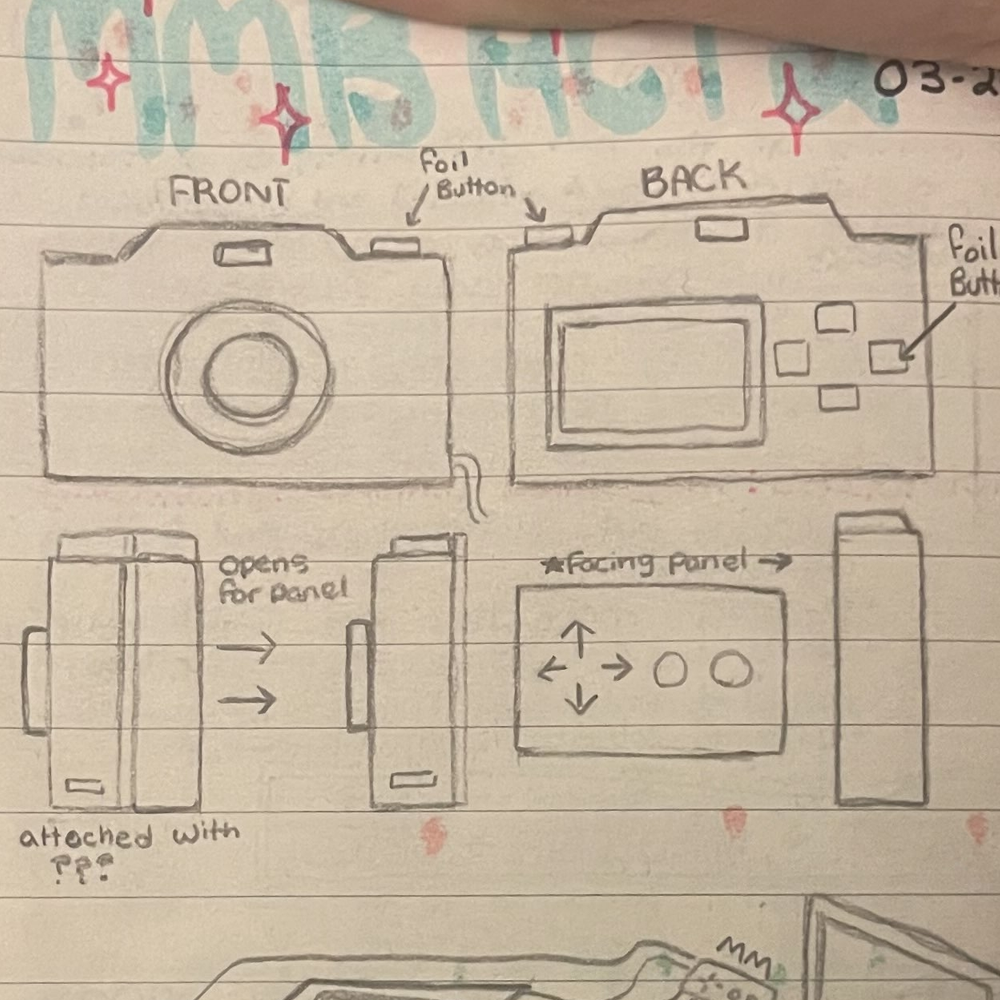 MMB ACT
03-2
FRONT
Foil
Button
BACK
foil
Butt
opens
for panel
★Facing panel →
attached with
???
MM